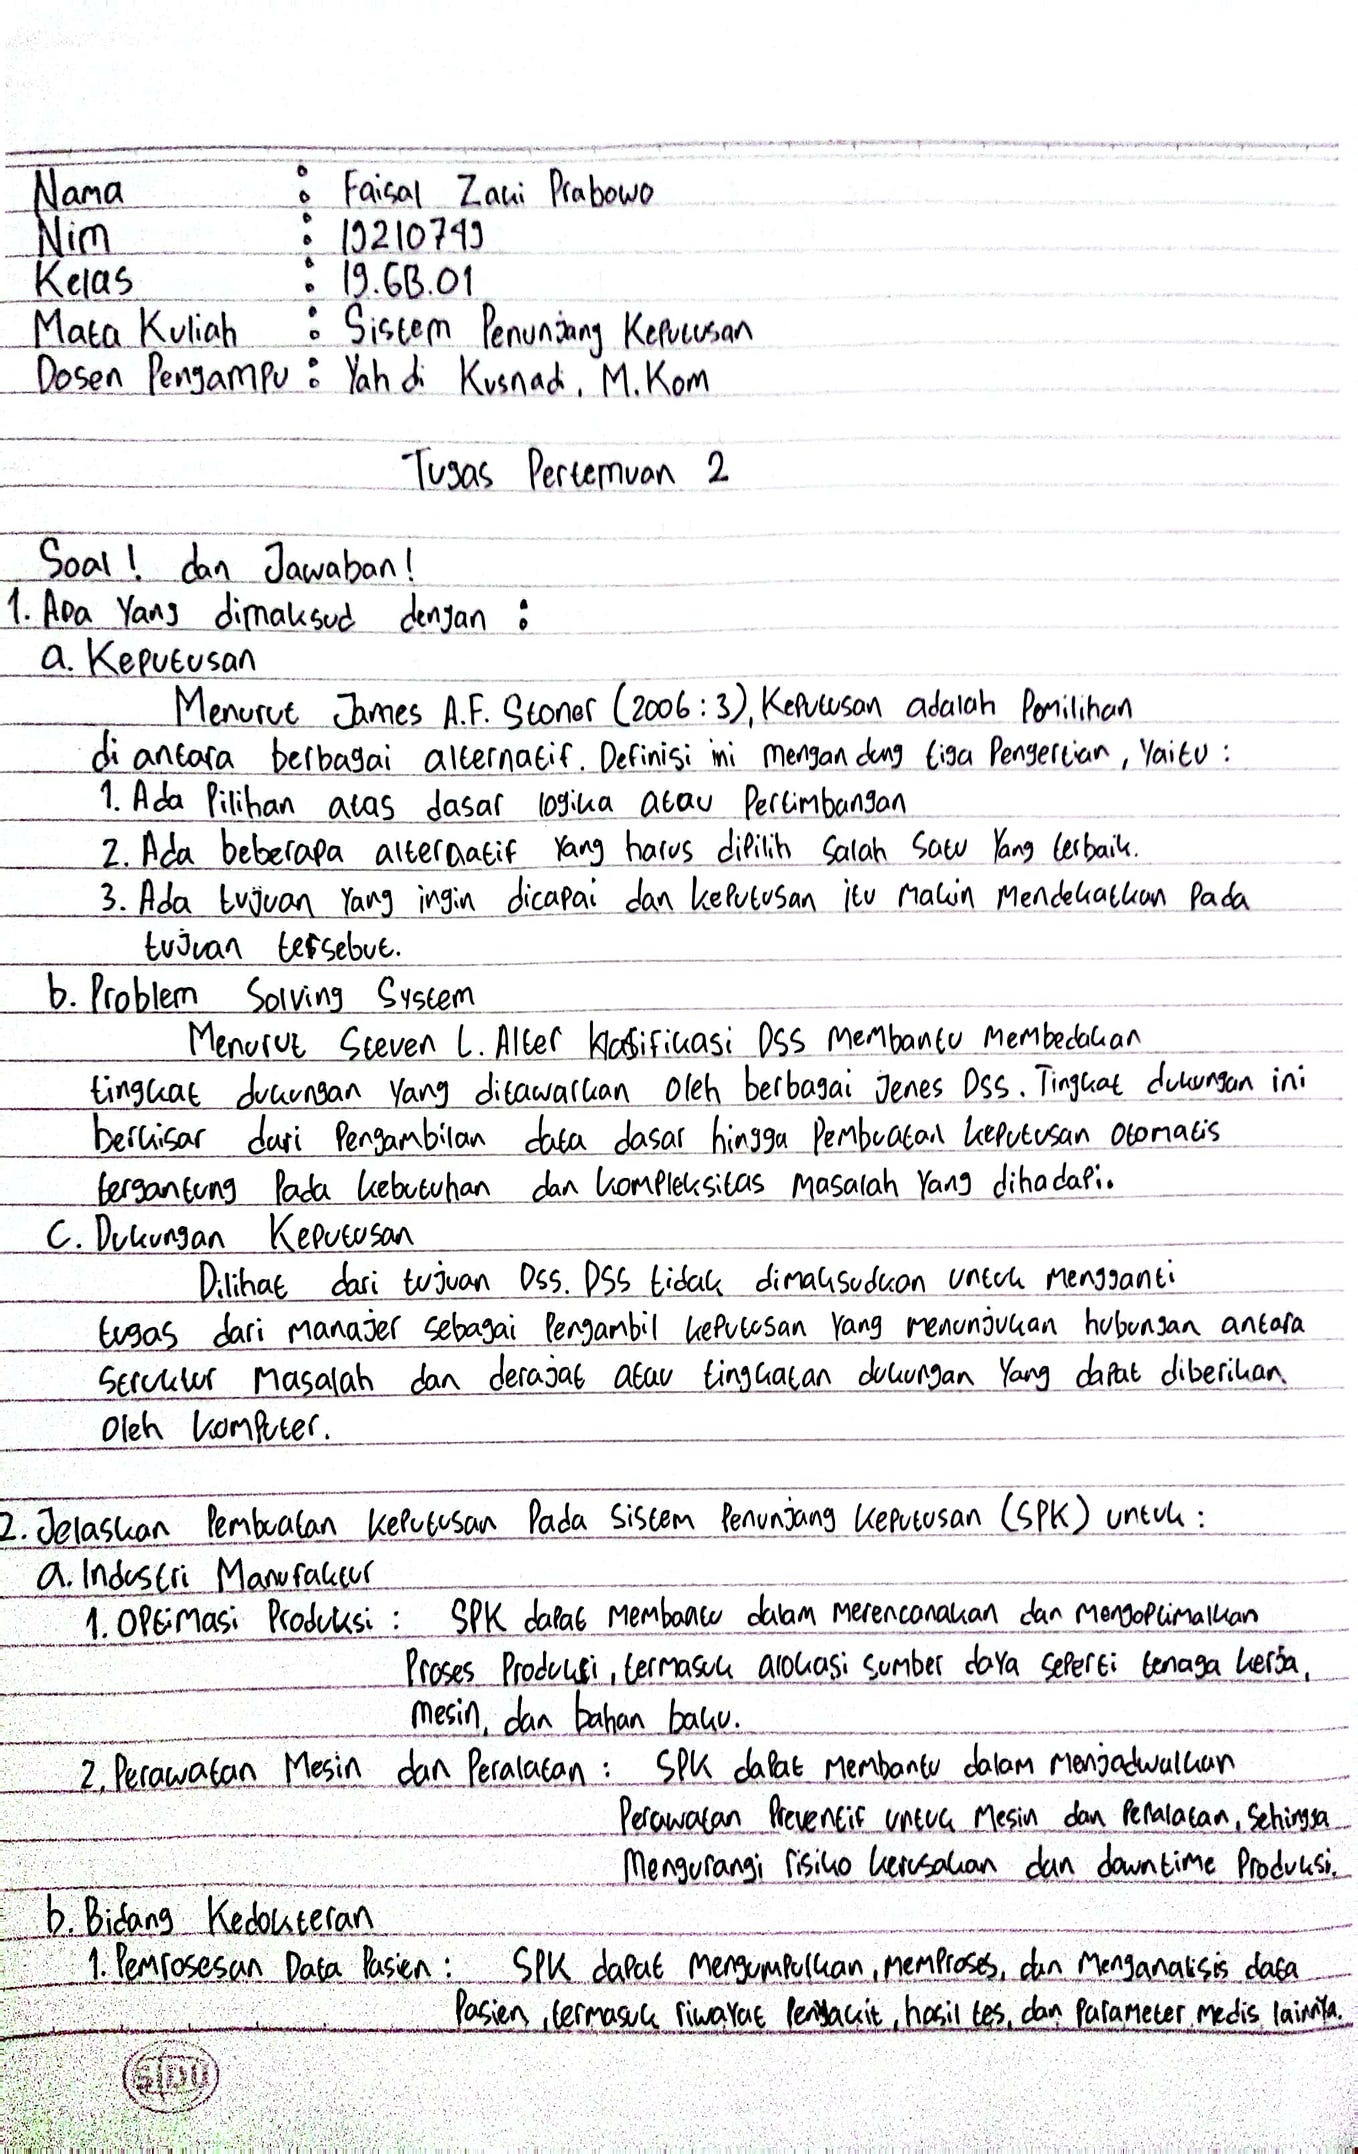 Nama : Faisal Zaki Prabowo
Nim : 19210749
Kelas : 19.6B.01
Mata Kuliah : Sistem Penunjang Keputusan
Dosen Pengampu : Yahdi Kusnadi, M.Kom
Tugas Pertemuan 2
Soal! dan Jawaban!
1. Apa Yang dimaksud dengan :
a. Keputusan
Menurut James A.F. Stoner (2006:3), Keputusan adalah Pemilihan
di antara berbagai alternatif. Definisi ini mengandung tiga Pengertian, Yaitu :
1. Ada Pilihan atas dasar logika atau Pertimbangan
2. Ada beberapa alternatif Yang harus dipilih Salah Satu Yang terbaik.
3. Ada tujuan Yang ingin dicapai dan keputusan itu makin mendekatkan Pada
tujuan tersebut.
b. Problem Solving System
Menurut Steven L. Alter klasifikasi DSS membantu membedakan
tingkat dukungan Yang ditawarkan oleh berbagai Jenes DSS. Tingkat dukungan ini
berkisar dari Pengambilan data dasar hingga Pembuatan keputusan otomatis
tergantung Pada kebutuhan dan kompleksitas masalah Yang dihadapi.
C. Dukungan Keputusan
Dilihat dari tujuan DSS. DSS tidak dimaksudkan untuk mengganti
tugas dari manajer sebagai Pengambil keputusan Yang menunjukan hubungan antara
Struktur masalah dan derajat atau tingkatan dukungan Yang dapat diberikan
Oleh komputer.
2. Jelaskan Pembuatan keputusan Pada Sistem Penunjang keputusan (SPK) untuk :
a. Industri Manufaktur
1. Optimasi Produksi : SPK dapat membantu dalam merencanakan dan mengoptimalkan
Proses Produksi, termasuk alokasi sumber daya seperti tenaga kerja,
mesin, dan bahan baku.
2. Perawatan Mesin dan Peralatan : SPK dapat membantu dalam menjadwalkan
Perawatan Preventif untuk mesin dan Peralatan, Sehingga
mengurangi risiko kerusakan dan downtime Produksi.
b. Bidang Kedokteran
1. Pemrosesan Data Pasien : SPK dapat mengumpulkan, memproses, dan menganalisis data
Pasien, termasuk riwayat Penyakit, hasil tes, dan Parameter medis lainnya.
SIDU